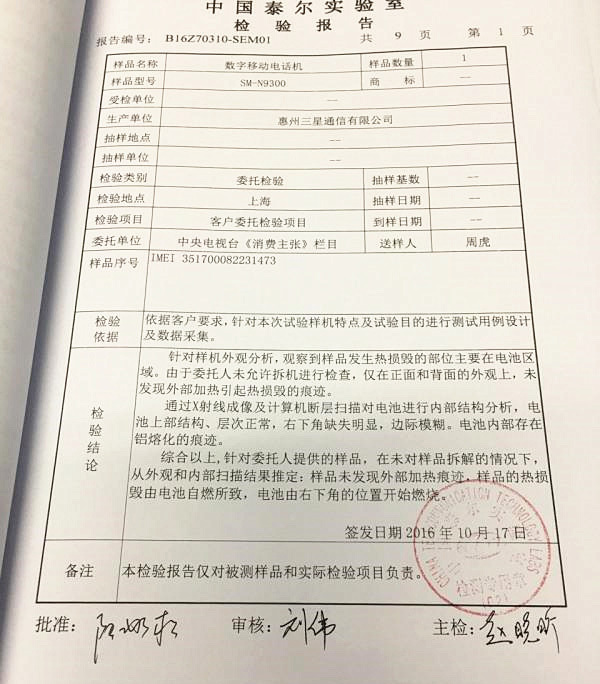 中国泰尔实验室
检 验 报 告
报告编号: B16Z70310-SEM01 共 9 页 第 1 页
样品名称 数字移动电话机 样品数量 1
样品型号 SM-N9300 商 标 --
受检单位 --
生产单位 惠州三星通信有限公司
抽样地点 --
抽样单位 --
检验类别 委托检验 抽样基数 --
检验地点 上海 抽样日期 --
检验项目 客户委托检验项目 到样日期 --
委托单位 中央电视台《消费主张》栏目 送样人 周虎
样品序号 IMEI 351700082231473
检验依据 依据客户要求,针对本次试验样机特点及试验目的进行测试用例设计
及数据采集。
检验结论
针对样机外观分析,观察到样品发生热损毁的部位主要在电池区
域。由于委托人未允许拆机进行检查,仅在正面和背面的外观上,未
发现外部加热引起热损毁的痕迹。
通过X射线成像及计算机断层扫描对电池进行内部结构分析,电
池上部结构、层次正常,右下角缺失明显,边际模糊。电池内部存在
铝熔化的痕迹。
综合以上,针对委托人提供的样品,在未对样品拆解的情况下,
从外观和内部扫描结果推定:样品未发现外部加热痕迹,样品的热损
毁由电池自燃所致,电池由右下角的位置开始燃烧。
签发日期 2016 年 10 月 17 日
备注 本检验报告仅对被测样品和实际检验项目负责。
CHINA TELECOMMUNICATION TECHNOLOGY LABS
检测专用章
(2)
批准: 审核: 刘伟 主检: 赵晓昕